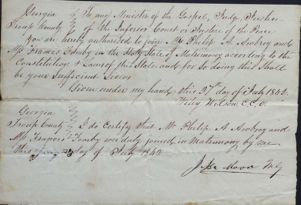 Georgia To any Minister of the Gospel, Judge, Justice
Troup County of the Superior Court or Justice of the Peace
You are hereby authorized to join Mr Philip A
Mrs Frances in the Holy State of Matrimony according to the
Constitution & Laws of this State and for so doing this shall
be your Sufficient License
Given under my hand this day of July 1842
Wilson C.C.O.
Georgia
Troup County I do Certify that Mr Philip A and
Mrs Frances were duly joined in Matrimony by me
this day of July 1842